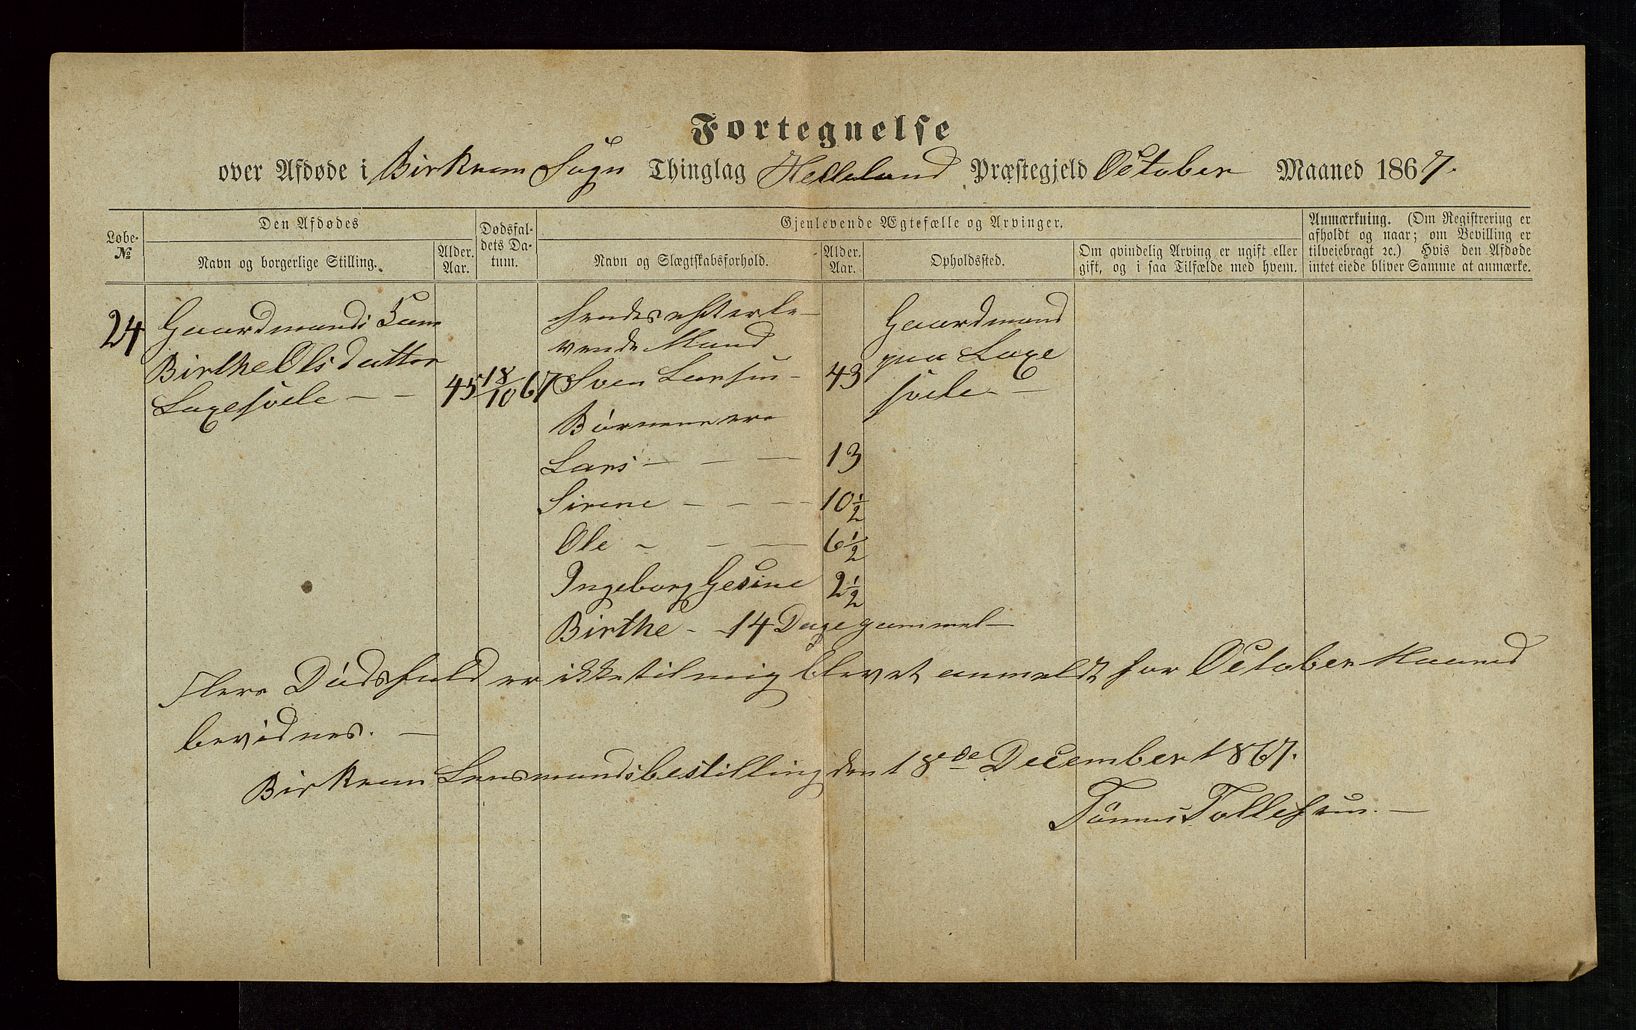 Fortegnelse
over Afdøde i Birkrem Sogn Thinglag Helleland Præstegjeld October Maaned 1867.
Løbe-№
Den Afdødes
Navn og borgerlige Stilling.
Alder. Aar.
Dødsfaldets Datum.
Gjenlevende Ægtefælle og Arvinger.
Navn og Slægtskabsforhold.
Alder. Aar.
Opholdssted.
Om qvindelig Arving er ugift eller
gift, og i saa Tilfælde med hvem.
Anmærkning. (Om Registrering er
afholdt og naar; om Bevilling er
tilveiebragt ꝛc.) Hvis den Afdøde
intet eiede bliver Samme at anmærke.
24 Gaardmands Kone
Birthe Olsdatter
Laxesvele - - 45 18/10 67
hendes efterle-
vende Mand
Sven Larsen - 43
Gaardmand
paa Laxe
svele -
Børnene ere
Lars - - - 13
Sirene - - - 10 1/2
Ole - - - 6 1/2
Ingeborg Gesine 2 1/2
Birthe - 14 Dage gammel -
Flere Dødsfald er ikke til mig blevet anmeldt for October Maaned
bevidnes. -
Birkrem Lensmandsbestilling den 18de December 1867.
Tønnes Tollefsen. -